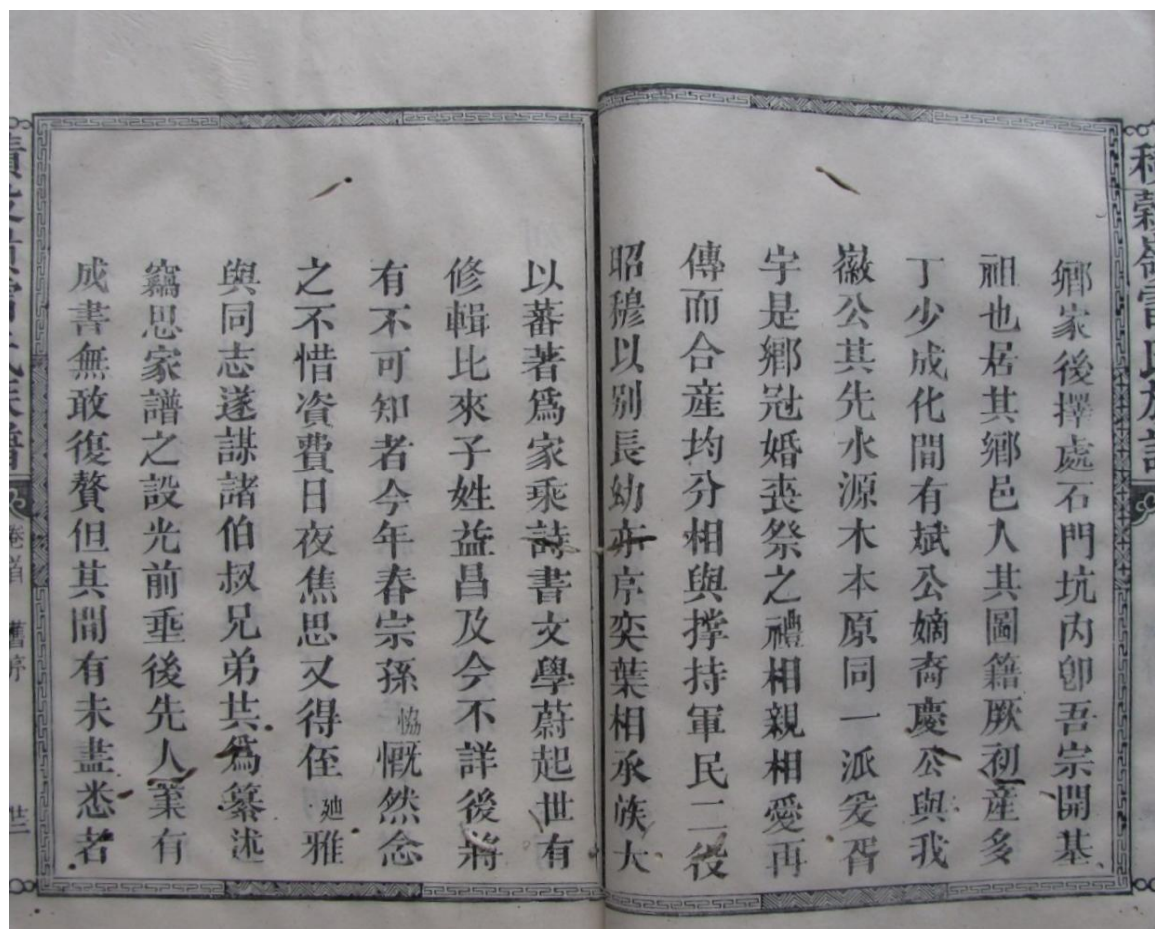 鄉家後擇處石門坑內卽吾宗開基
祖也居其鄉邑人其圖籍厥初產多
丁少成化間有斌公嫡裔慶公與我
徽公其先水源木本原同一派爰胥
宇是鄉冠婚喪祭之禮相親相愛再
傳而合產均分相與撑持軍民二役
昭穆以别長幼亦序奕葉相承族大
以蕃著爲家乘詩書文學蔚起世有
修輯比來子姓益昌及今不詳後將
有不可知者今年春宗孫恊慨然念
之不惜資費日夜焦思又得侄廸雅
與同志遂謀諸伯叔兄弟共爲纂述
竊思家譜之設光前垂後先人業有
成書無敢復贅但其間有未盡悉者
卷首 舊序 廿二